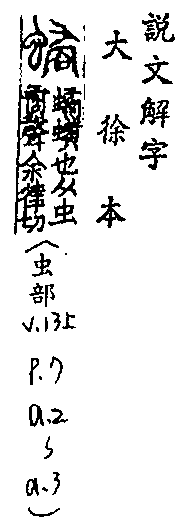 説文解字
大徐本
𧑐蟥也从虫
矞聲余律切
(虫部
v.13上
p.7
a.2
~
a.3)